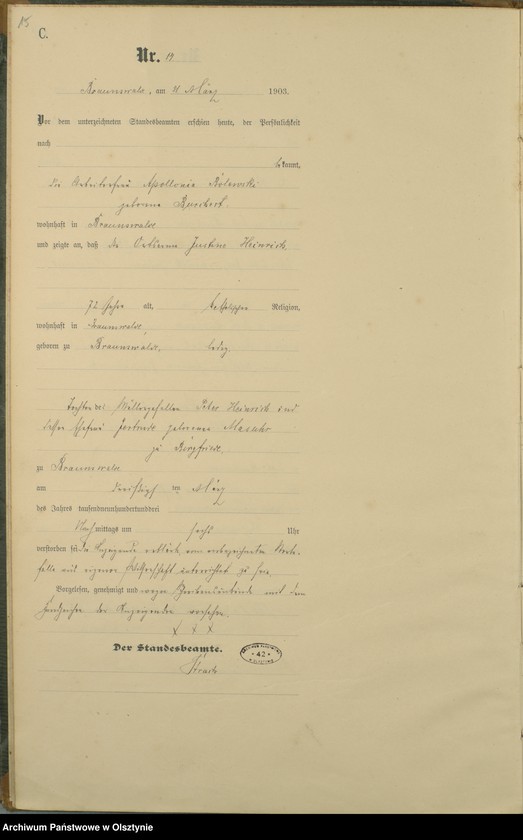 15
C.
Nr. 19
Braunswalde, am 31 März 1903.
Vor dem unterzeichneten Standesbeamten erschien heute, der Persönlichkeit
nach
bekannt,
die Arbeiterfrau Apollonia
geborene
wohnhaft in Braunswalde
und zeigte an, daß die Justine Heinrich
72 Jahre alt, katholischer Religion,
wohnhaft in Braunswalde,
geboren zu Braunswalde, ledig.
Tochter des Müllergesellen Peter Heinrich und
dessen Ehefrau geborene
zu
zu Braunswalde
am dreißigsten März
des Jahres tausendneunhundertunddrei
Nachmittags um sechs Uhr
verstorben sei. Die Anzeigende erklärte, vom vorbezeichneten Sterbe-
falle aus eigener Wissenschaft unterrichtet zu sein.
Vorgelesen, genehmigt und wegen mit dem
Handzeichen der Anzeigenden versehen.
X X X
Der Standesbeamte.
42
Archiwum Państwowe w Olsztynie